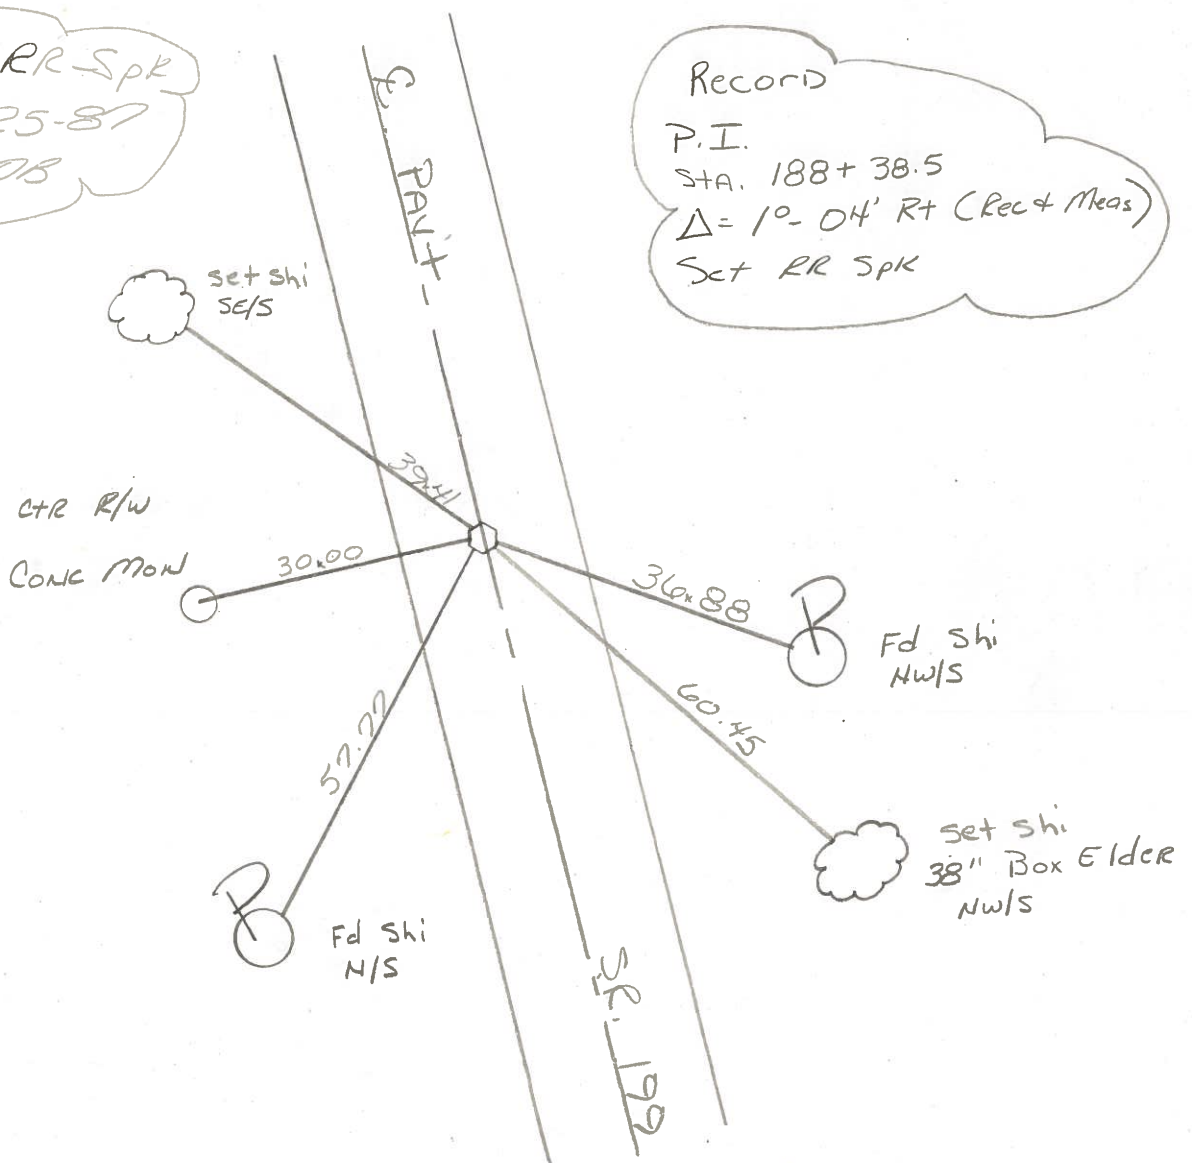 RR Spk
25-87
OB
Record
P.I.
StA. 188+38.5
Δ= 1°-04' Rt (Rec & Meas)
Set RR Spk
℄ PAV't
set shi
SE/S
39.41
CtR R/W
Conc Mon
30.00
36.88
P
Fd Shi
NW/S
57.77
60.45
P
Fd Shi
N/S
set shi
38" Box Elder
NW/S
SR. 199